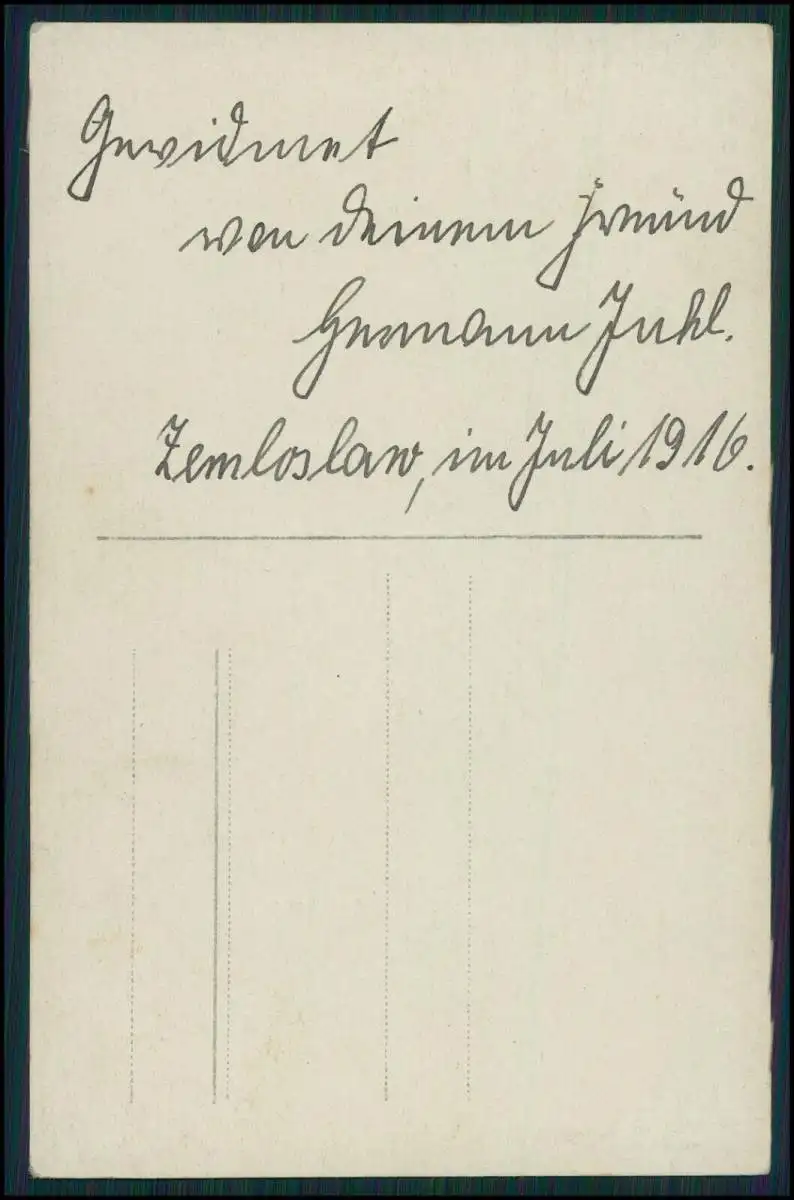 Gewidmet
von deinem Freund
Hermann
Zemloslaw, im Juli 1916.